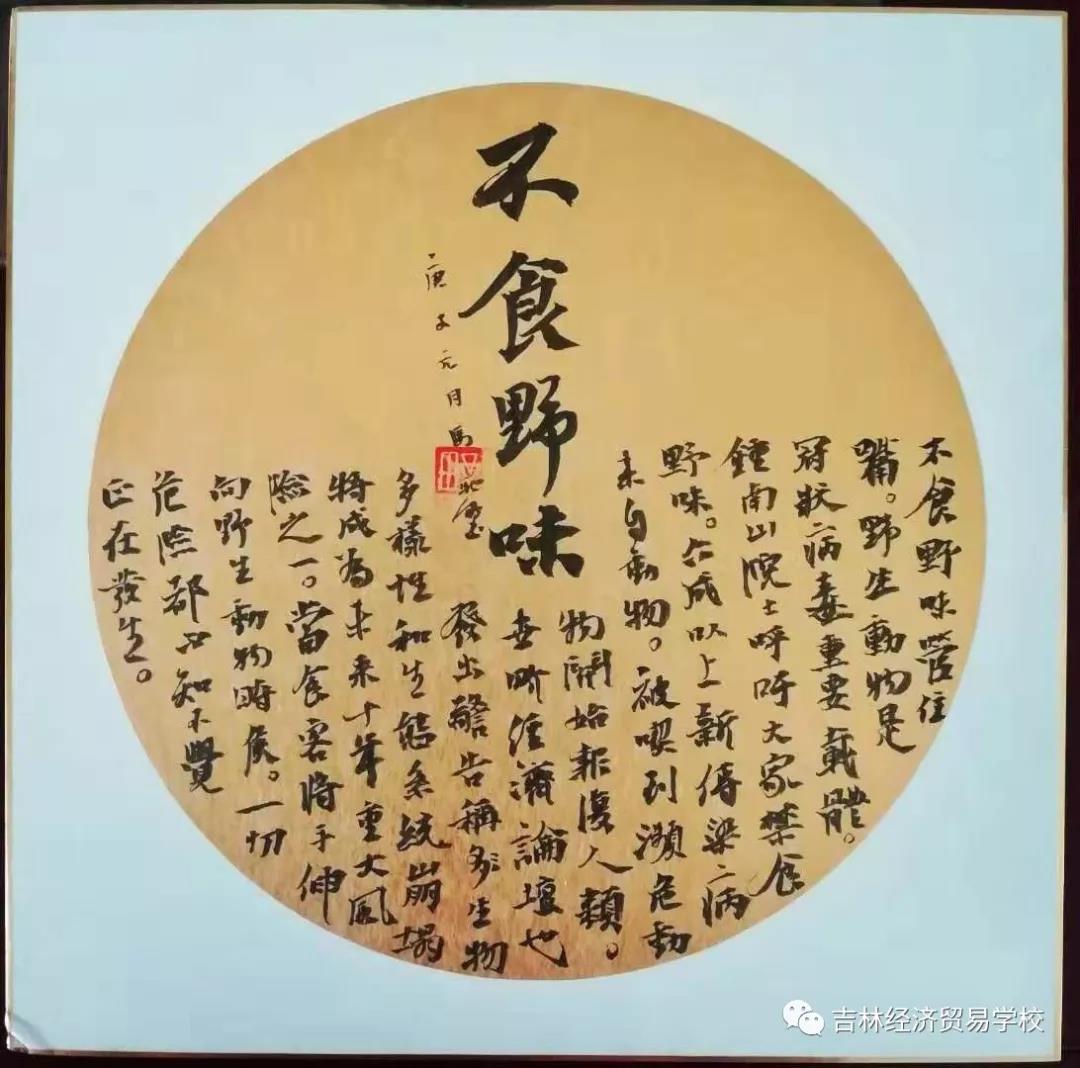 不食野味
庚子元月馬
不食野味管住
嘴。野生動物是
冠狀病毒重要載體。
鍾南山院士呼吁大家禁食
野味。六成以上新傳染病
来自動物。被喫到瀕危動
物開始報復人類。
世界經濟論壇也
發出警告稱多生物
多樣性和生態系統崩塌
將成為未来十年重大風
險之一。當食客將手伸
向野生動物時候。一切
危險都不知不覺
正在發生。
吉林经济贸易学校